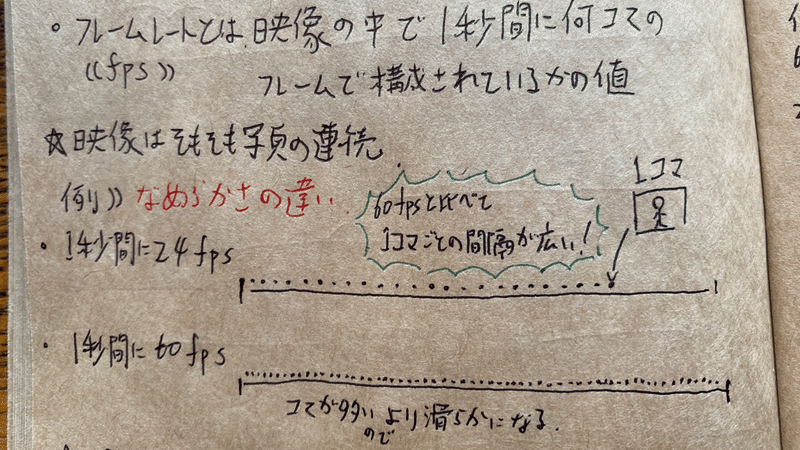 。フレームレートとは、映像の中で1秒間に何コマの
《fps》 フレームで構成されているかの値
☆映像はそもそも写真の連続
例》なめらかさの違い
1コマ
60fpsと比べて
1コマごとの間隔が広い!
・1秒間に24fps
・1秒間に60fps
コマが多いのでより滑らかになる.